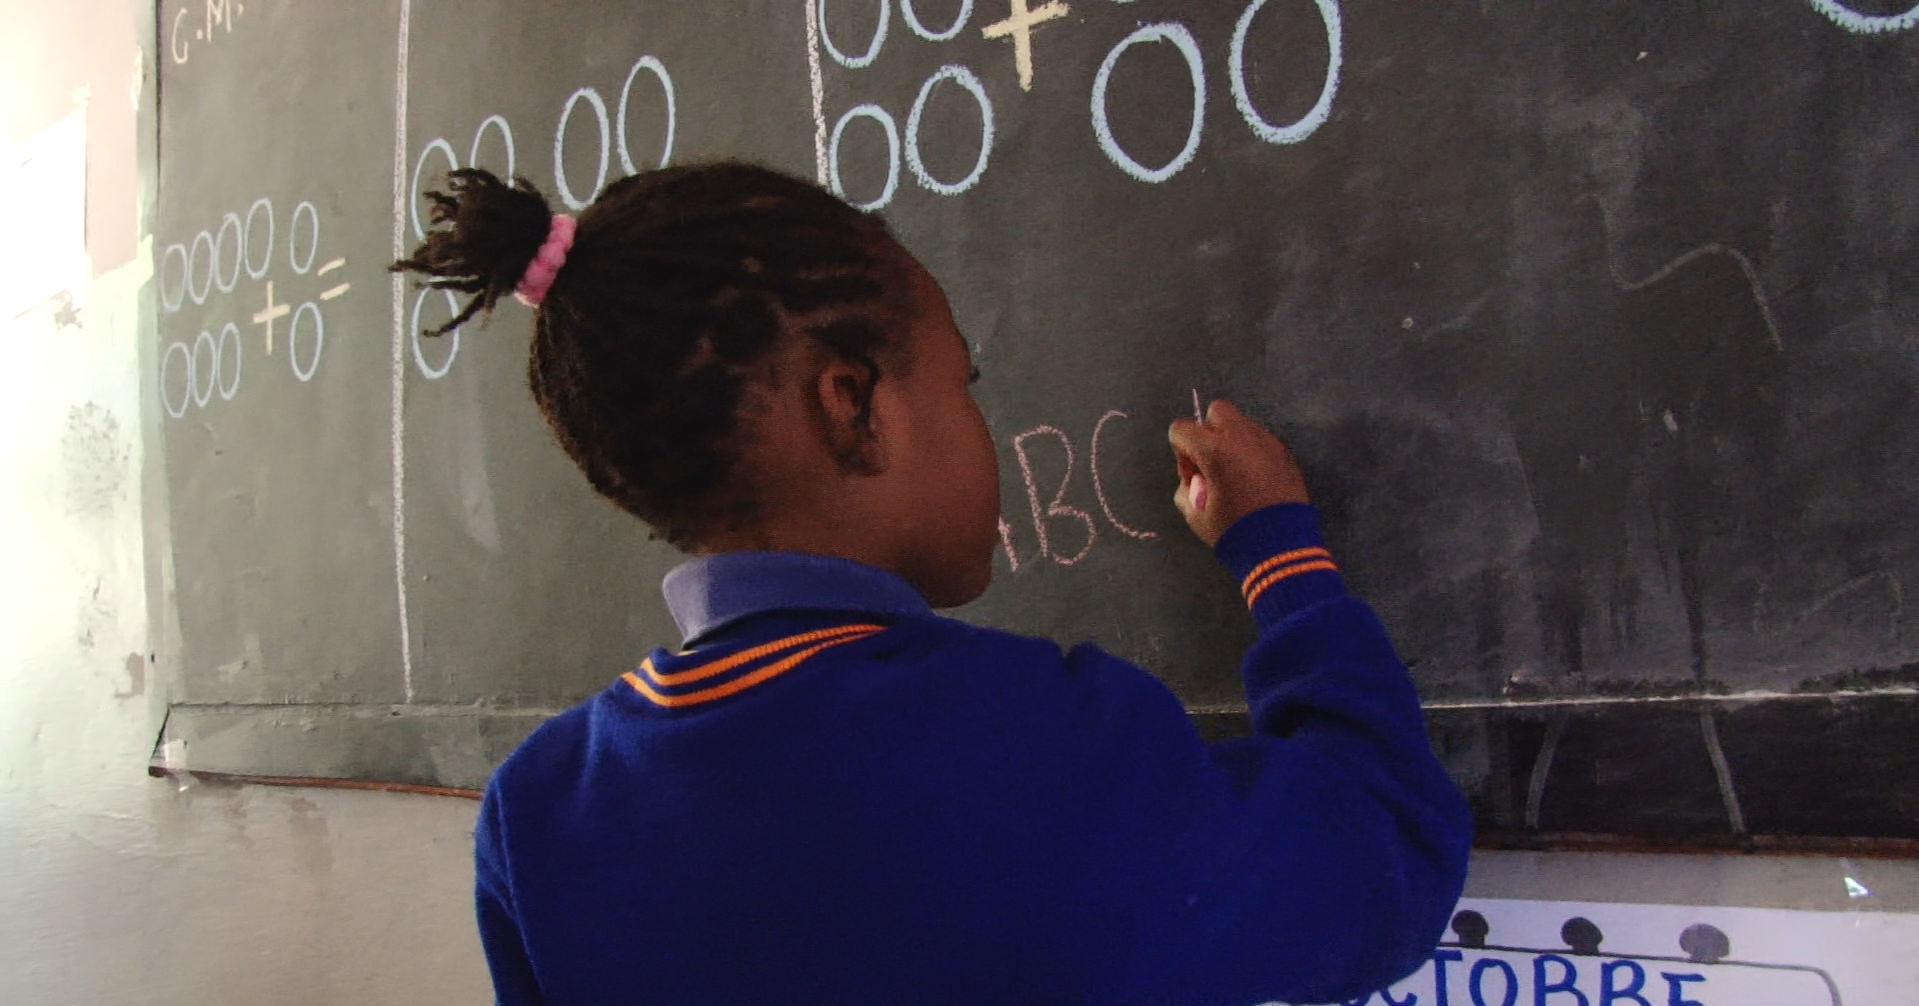 G.M.
0000 0
000 + 0 =
00 00
0
00 +
00 00
ABC
OCTOBRE